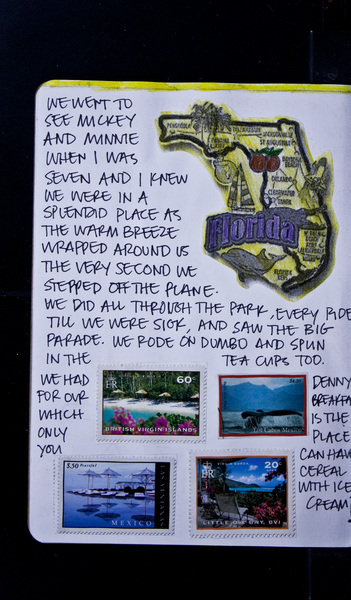 WE WENT TO
SEE MICKEY
AND MINNIE
WHEN I WAS
SEVEN AND I KNEW
WE WERE IN A
SPLENDID PLACE AS
THE WARM BREEZE
WRAPPED AROUND US
THE VERY SECOND WE
STEPPED OFF THE PLANE.
WE DID ALL THROUGH THE PARK, EVERY RIDE
TILL WE WERE SICK, AND SAW THE BIG
PARADE. WE RODE ON DUMBO AND SPUN
IN THE TEA CUPS TOO.
WE HAD DENNY
FOR OUR BREAKFA
WHICH IS THE
ONLY PLACE
YOU CAN HAVE
CEREAL
WITH ICE
CREAM!
PENSACOLA
ST. AUGUSTINE
DAYTONA
BEACH
ORLANDO
CLEARWATER
Florida
60c
BRITISH VIRGIN ISLANDS
Los Cabos Mexico
3.50
MEXICO
VIRGIN GORDA
20c
LITTLE DIX BAY, BVI